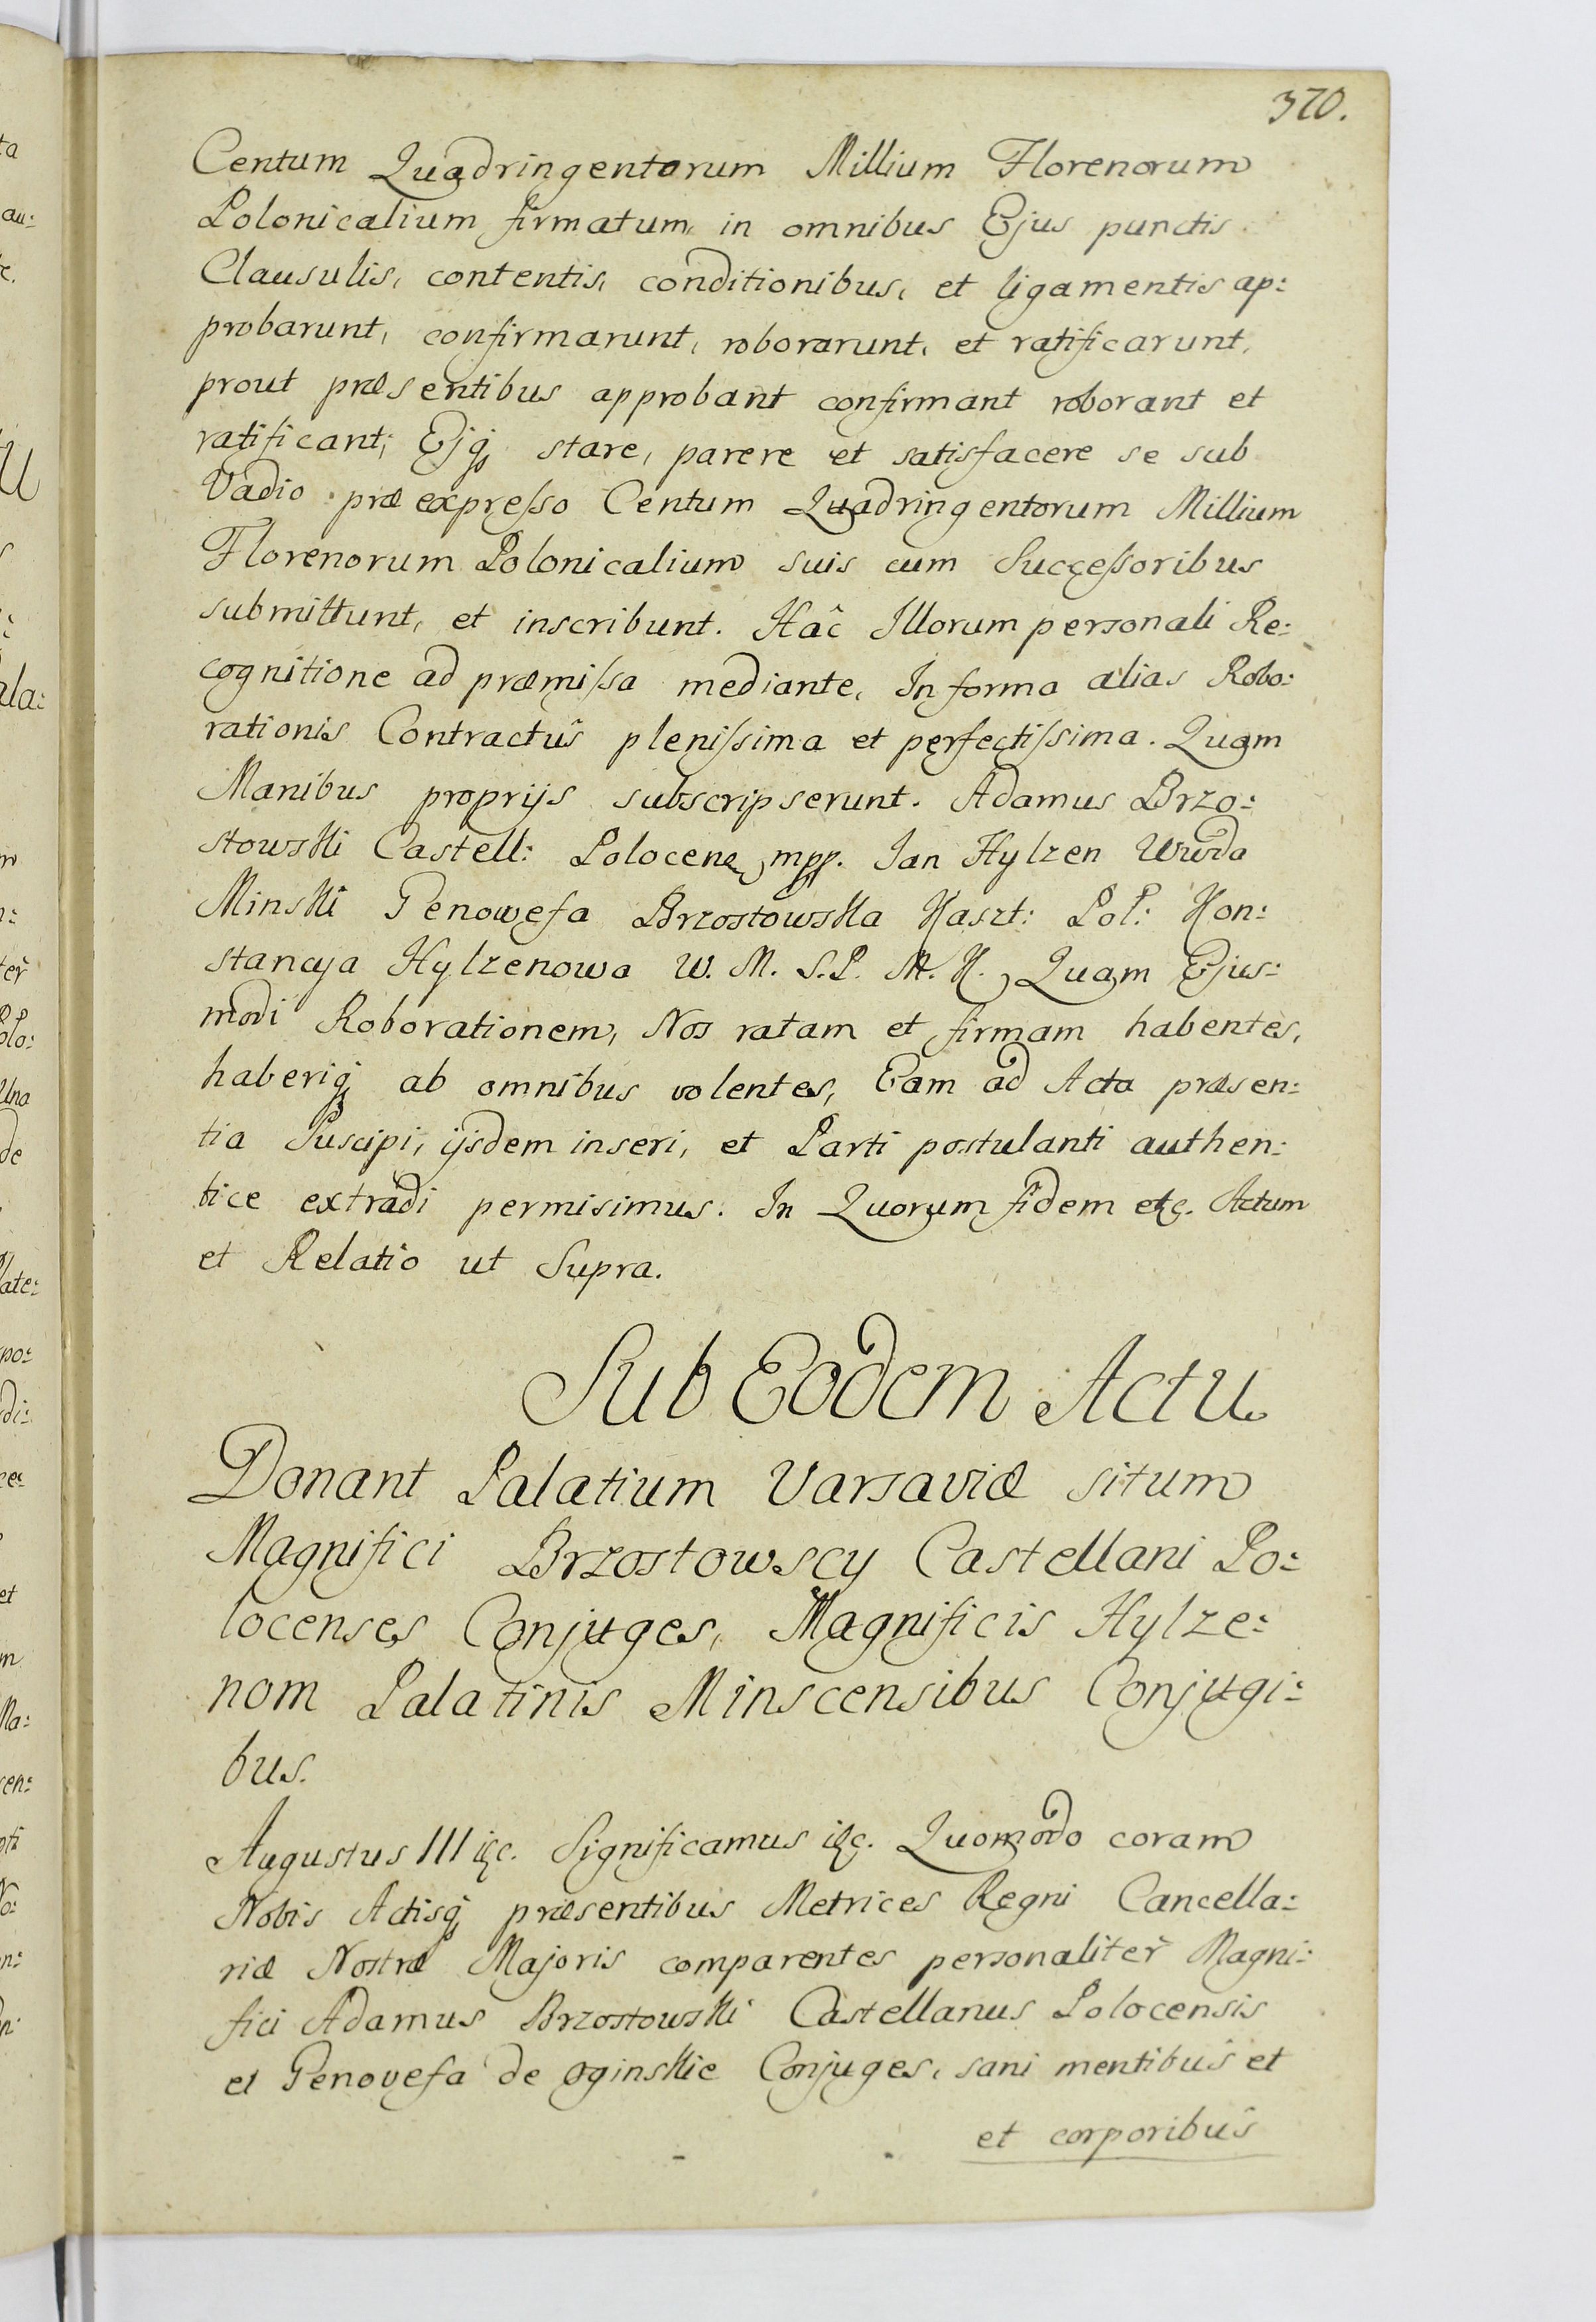 370.
Centum Quadringentorum Millium Florenorum
Polonicalium firmatum, in omnibus Ejus punctis
Clausulis, contentis, conditionibus, et ligamentis ap:
probarunt, confirmarunt, roborarunt, et ratificarunt,
prout præsentibus approbant confirmant roborant et
ratificant; Ejq stare, parere et satisfacere se sub
Vadio præexpresso Centum Quadringentorum Millium
Florenorum Polonicalium suis cum Successoribus
submittunt, et inscribunt. Hâc Illorum personali Re:
cognitione ad præmissa mediante, In forma alias Robo:
rationis Contractûs plenissima et perfectissima. Quam
Manibus proprijs subscripserunt. Adamus Brzo:
stowski Castell: Polocens mpp. Jan Hylzen Wwda
Minski Genowefa Brzostowska Kaszt: Pol: Kon:
stancya Hylzenowa W. M. S.P. M. K. Quam Ejus:
modi Roborationem, Nos ratam et firmam habentes,
haberiq ab omnibus volentes, Eam ad Acta præsen:
tia Suscipi, ijsdem inseri, et Parti postulanti authen:
tice extradi permisimus. In Quorum fidem etc. Actum
et Relatio ut Supra.
Sub Eodem Actu
Donant Palatium Varsaviæ situm
Magnifici Brzostowscy Castellani Po:
locenses Conjuges, Magnificis Hylze:
nom Palatinis Minscensibus Conjugi:
bus.
Augustus III etc. Significamus etc. Quomodo coram
Nobis Actisq præsentibus Metrices Regni Cancella:
riæ Nostræ Majoris comparentes personalitèr Magni:
fici Adamus Brzostowski Castellanus Polocensis
et Genovefa de Oginskie Conjuges, sani mentibus et
et corporibus